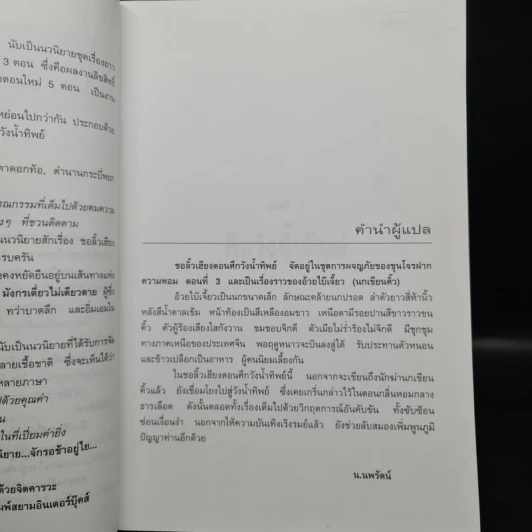 นับเป็นนวนิยายชุดเรื่องยาว
3 ตอน ซึ่งคือผลงานลิขสิทธิ์
งตอนใหม่ 5 ตอน เป็นงาน
หย่อนไปกว่ากัน ประกอบด้วย
วังน้ำทิพย์
าดอกท้อ, ตำนานกระบี่หยก
รณกรรมที่เต็มไปด้วยคมความ
งๆ ที่ชวนติดตาม
นวนิยายสักเรื่อง ชอลิ้วเฮียง
รบครัน
งคงหยัดยืนอยู่บนเส้นทางแห่ง
มังกรเดี่ยวไม่เดียวดาย ผู้ซึ่ง
ทว่าบาดลึก และอิ่มเอมใน
นับเป็นนวนิยายที่ได้รับการจัด
ลายเชื้อชาติ ซึ่งจะเห็นได้ว่า
หลายภาษา
ปด้วยคุณค่า
น
ในที่เปี่ยมค่ายิ่ง
นิยาย...จักรอช้าอยู่ไย...
ด้วยจิตคารวะ
มพ์สยามอินเตอร์บุ๊คส์
คำนำผู้แปล
ชอลิ้วเฮียงตอนศึกวังน้ำทิพย์ จัดอยู่ในชุดการผจญภัยของขุนโจรฝาก
ความหอม ตอนที่ 3 และเป็นเรื่องราวของอ้วยไบ้เจี้ยว (นกเขียนคิ้ว)
อ้วยไบ้เจี้ยวเป็นนกขนาดเล็ก ลักษณะคล้ายนกปรอด ลำตัวยาวสี่ห้านิ้ว
หลังสีน้ำตาลเข้ม หน้าท้องเป็นสีเหลืองอมขาว เหนือตามีรอยปานสีขาวราวขน
คิ้ว ตัวผู้ร้องเสียงใสกังวาน ชมชอบจิกตี ตัวเมียไม่ร่ำร้องไม่จิกตี มีชุกชุม
ทางภาคเหนือของประเทศจีน พอฤดูหนาวจะบินลงสู่ใต้ รับประทานตัวหนอน
และข้าวเปลือกเป็นอาหาร ผู้คนนิยมเลี้ยงกัน
ในชอลิ้วเฮียงตอนศึกวังน้ำทิพย์นี้ นอกจากจะเขียนถึงนักฆ่านกเขียน
คิ้วแล้ว ยังเชื่อมโยงไปสู่วังน้ำทิพย์ ซึ่งเคยเกริ่นกล่าวไว้ในตอนกลิ่นหอมกลาง
ธารเลือด ดังนั้นตลอดทั้งเรื่องเต็มไปด้วยวิกฤตการณ์อันคับขัน ทั้งซับซ้อน
ซ่อนเงื่อนงำ นอกจากให้ความบันเทิงเริงรมย์แล้ว ยังช่วยลับสมองเพิ่มพูนภูมิ
ปัญญาท่านอีกด้วย
น.นพรัตน์